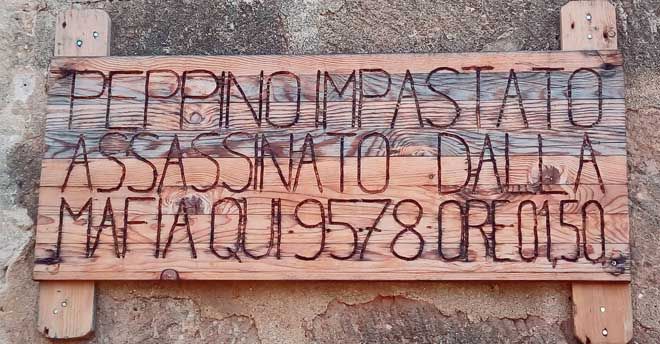 PEPPINO IMPASTATO
ASSASSINATO DALLA
MAFIA QUI 9578 ORE 01,50